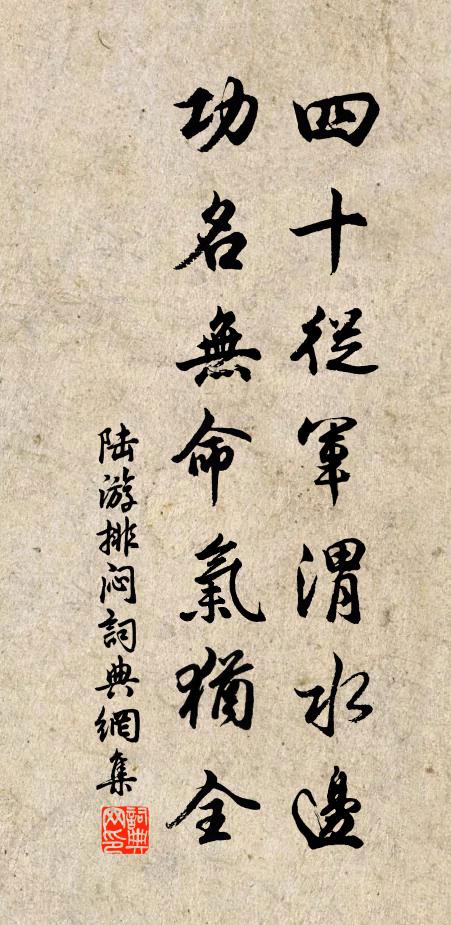 四十從軍渭水邊
功名無命氣猶全
陆游排闷詞典網集
詞典網印